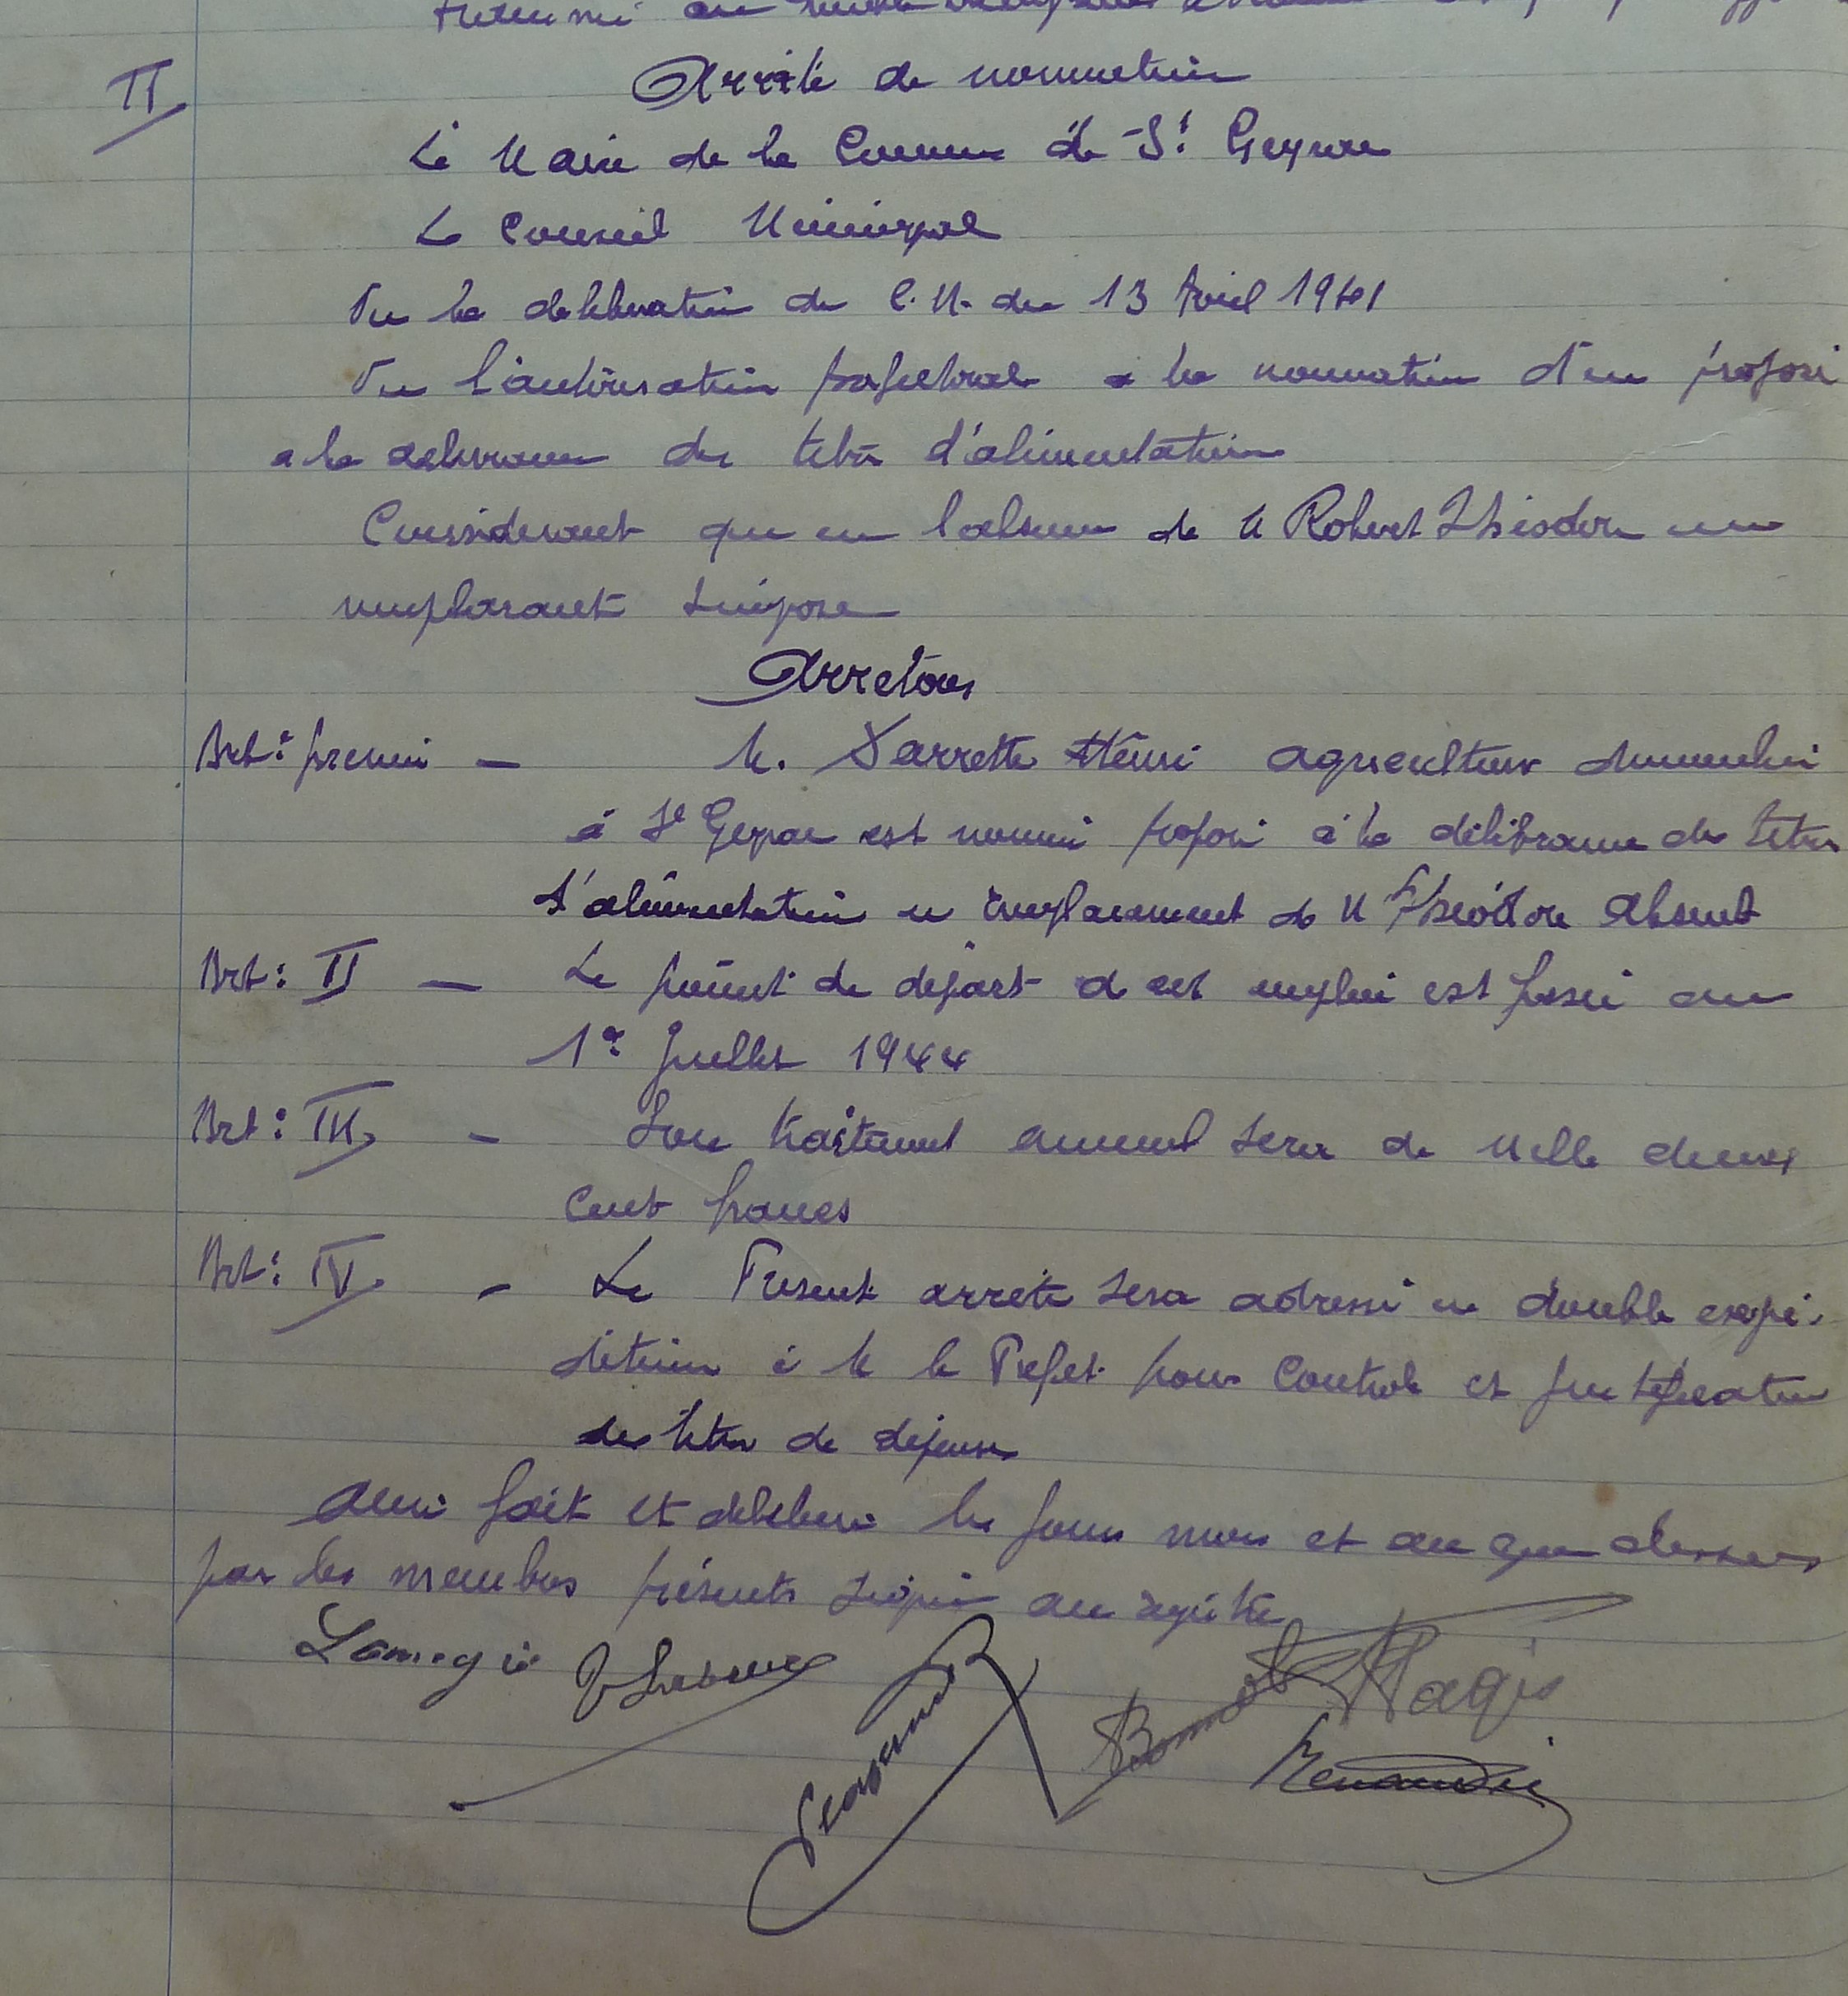 II
Arrêté de nomination
Le Maire de la Commune de St Geyrac
Le Conseil Municipal
Vu la deliberation du C. M. du 13 Avril 1941
Vu l'autorisation prefectorale a la nomination d'un préposé
a la delivrance des titres d'alimentation
Considerant que en l'absence de M Robert Théodore un
remplacant s'impose
Arretons
Art: premier — M. Darrette Henri agriculteur domicilié
à St Geyrac est nommé préposé à la délibrance des titres
d'alimentation en remplacement de M Théodore Absent
Art: II — Le point de départ d cet emploi est fixé au
1er Juillet 1944
Art: III — Son traitement annuel sera de Mille deux
Cent francs
Art: IV — Le Present arrêté sera adressé en double expé-
dition à M le Prefet pour Controle et justification
des titres de dépenses
Ainsi fait et déliberé les jours mois et an que dessus
par les membres présents signé au registre
Lamegie
Magis